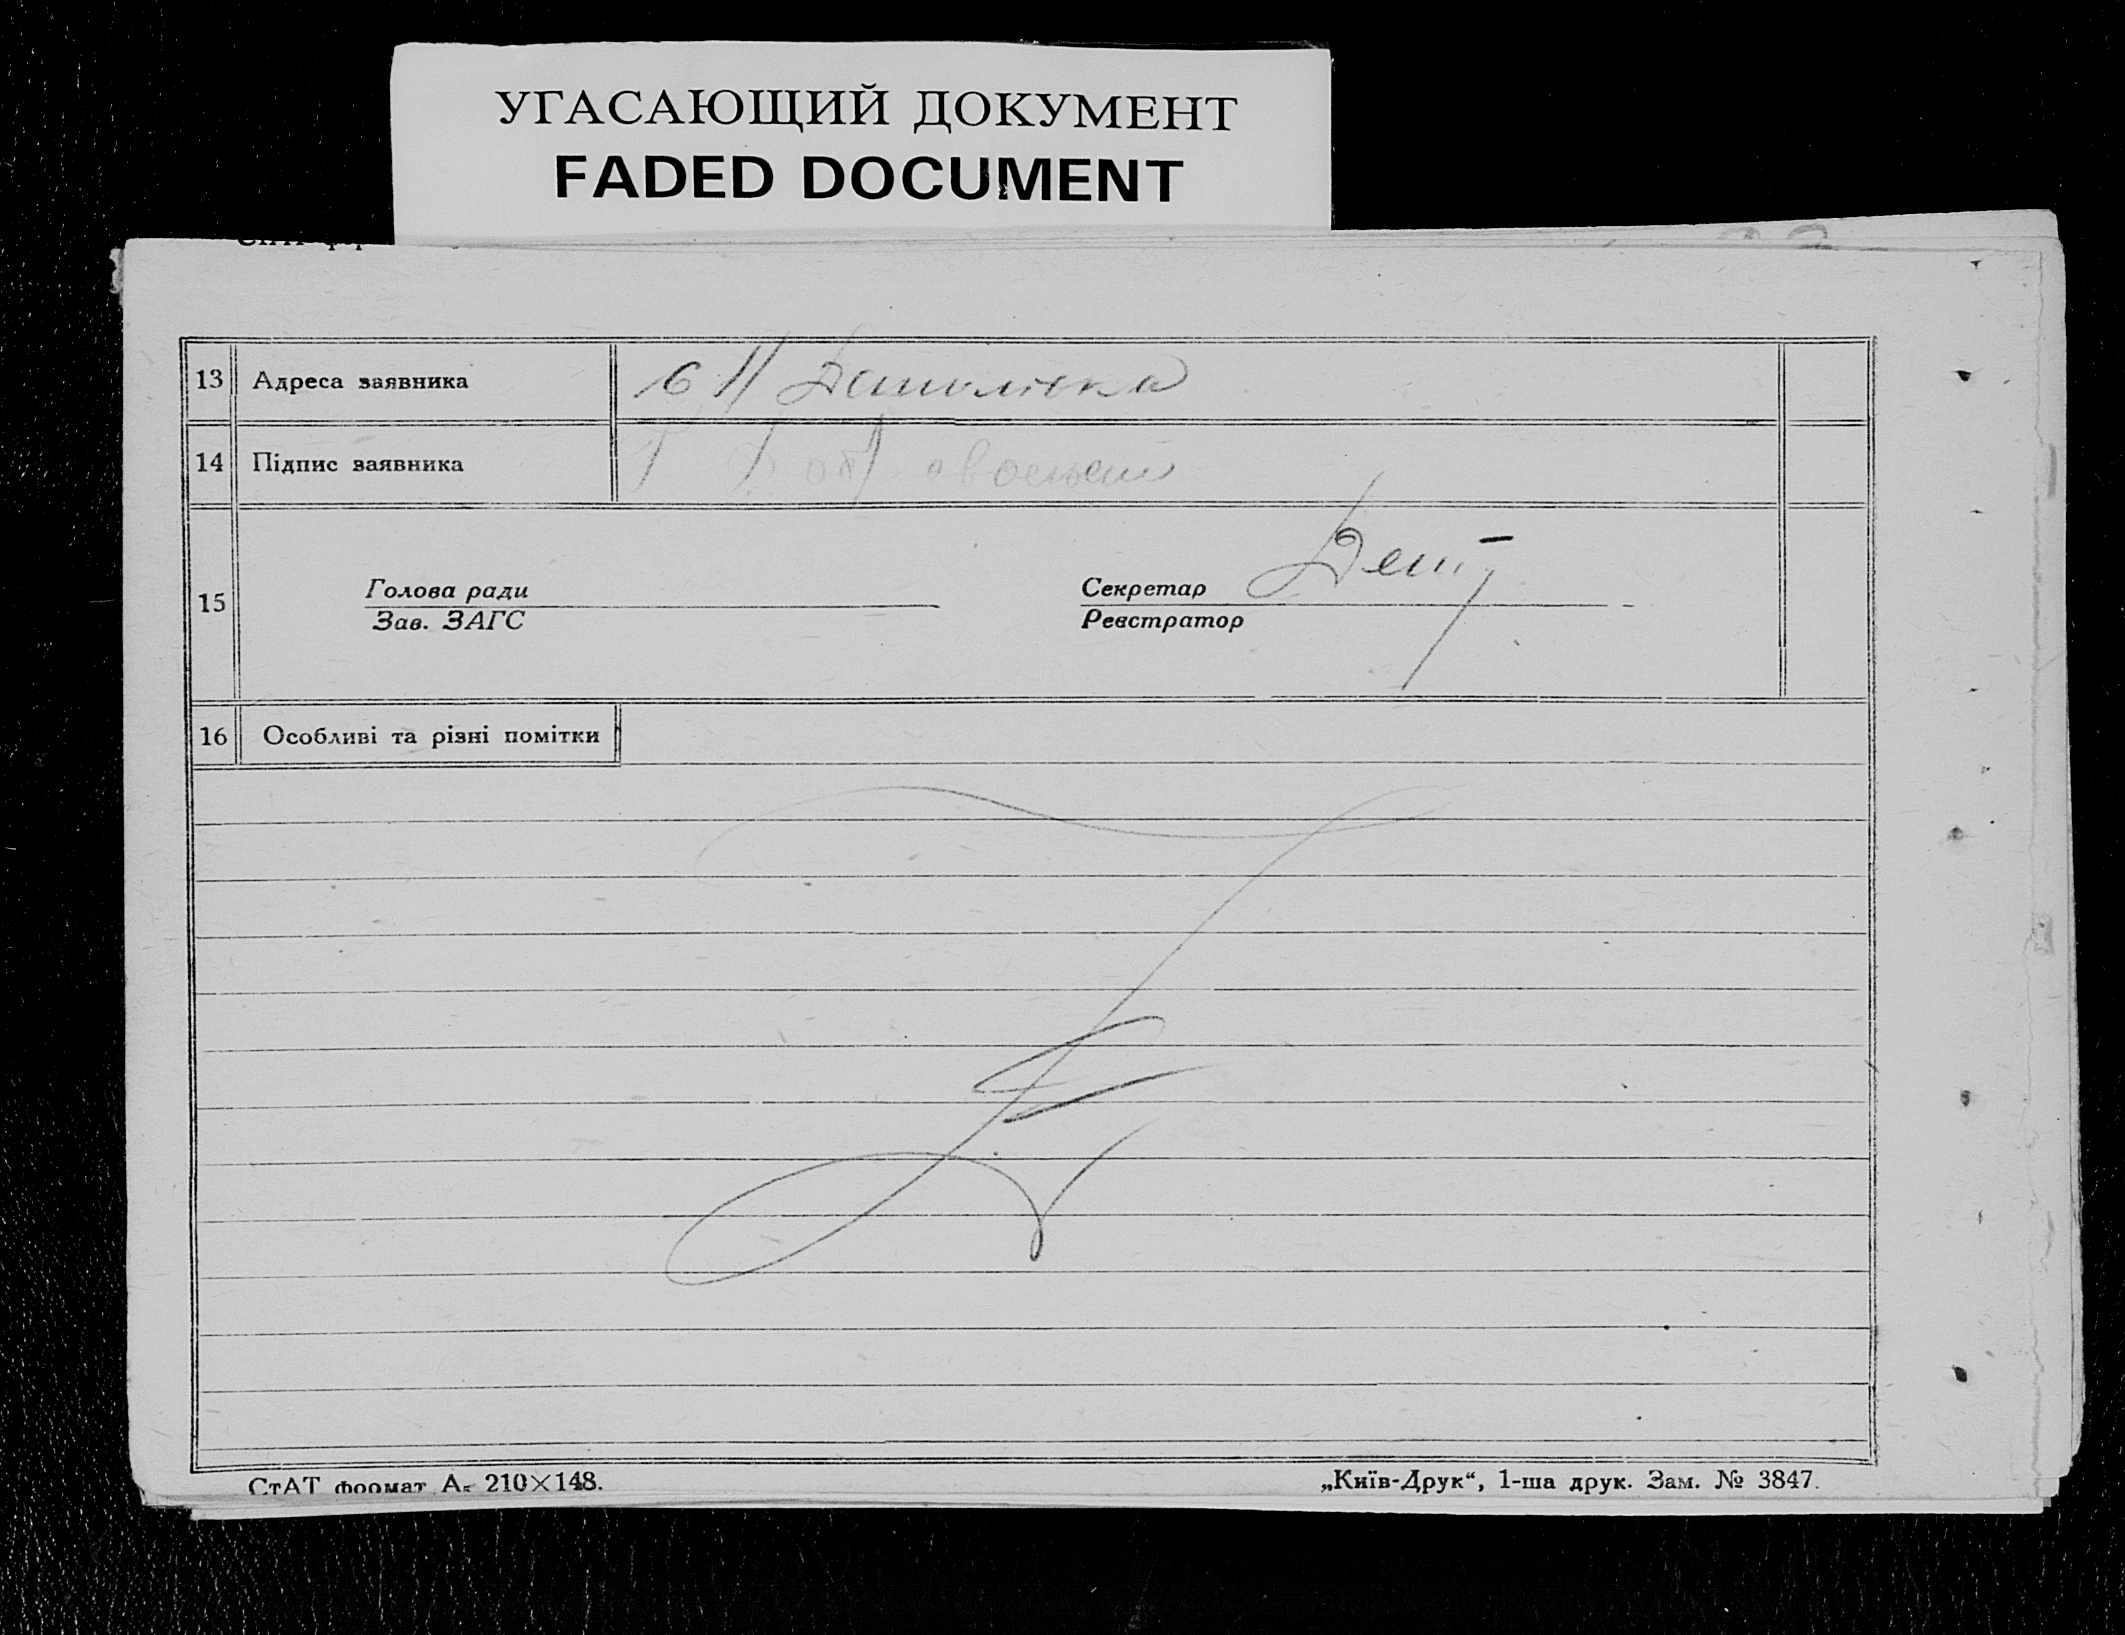 УГАСАЮЩИЙ ДОКУМЕНТ
FADED DOCUMENT
13 Адреса заявника
14 Підпис заявника
15 Голова ради Секретар
Зав. ЗАГС Реєстратор
16 Особливі та різні помітки
СтАТ формат А₅ 210×148. „Київ-Друк“, 1-ша друк. Зам. № 3847.